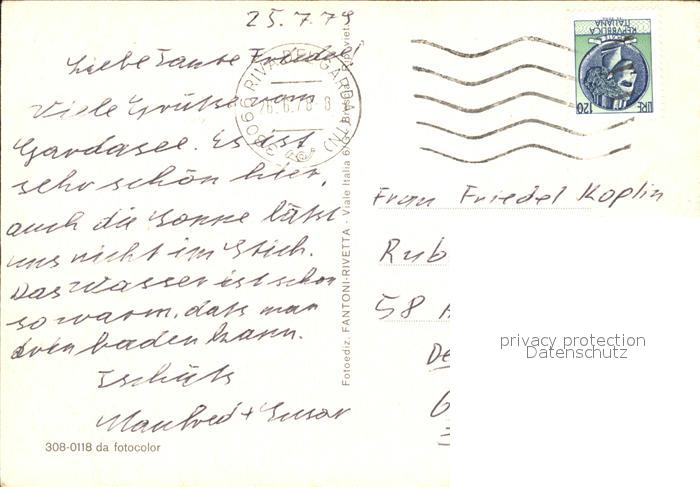 25.7.79
Liebe Tante Friedel
Viele Grüße vom
Gardasee. Es ist
sehr schön hier,
auch die Sonne läßt
uns nicht im Stich.
Das Wasser ist schon
so warm, daß man
drin baden kann.
Tschüß
Manfred + Susan
308-0118 da fotocolor
Fotoediz. FANTONI-RIVETTA - Viale Italia
38066 RIVA DEL GARDA (TN)
REPUBBLICA
ITALIANA
LIRE 120
Frau Friedel Koplin
Rub
58
De
6
privacy protection
Datenschutz